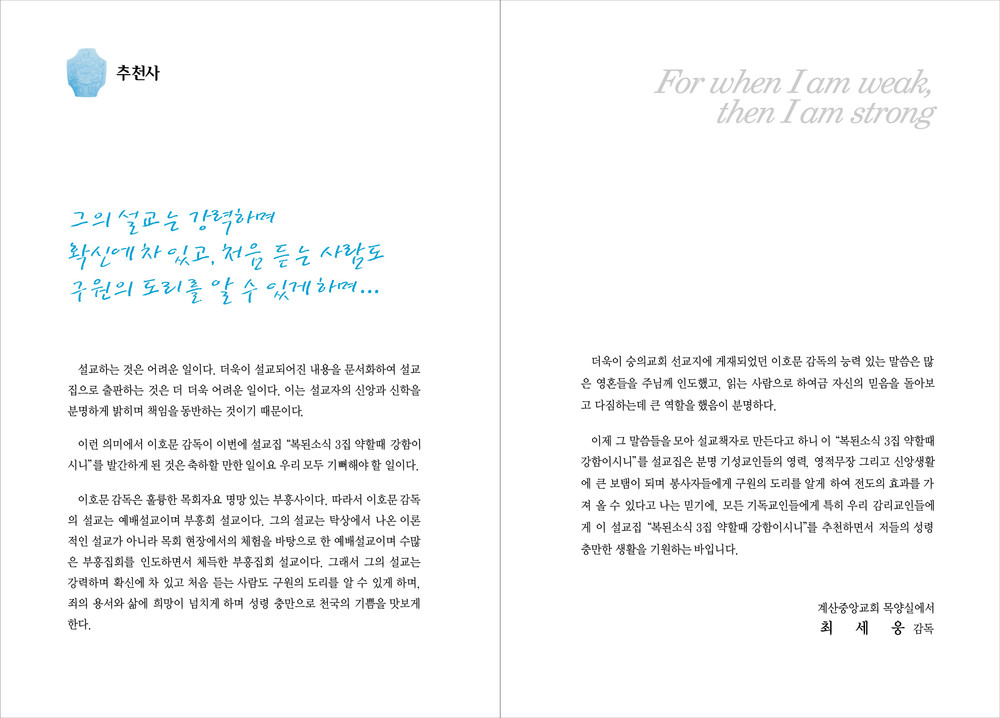 추천사
그의 설교는 강력하며
확신에 차 있고, 처음 듣는 사람도
구원의 도리를 알 수 있게 하며...
설교하는 것은 어려운 일이다. 더욱이 설교되어진 내용을 문서화하여 설교
집으로 출판하는 것은 더 더욱 어려운 일이다. 이는 설교자의 신앙과 신학을
분명하게 밝히며 책임을 동반하는 것이기 때문이다.
이런 의미에서 이호문 감독이 이번에 설교집 “복된소식 3집 약할때 강함이
시니”를 발간하게 된 것은 축하할 만한 일이요 우리 모두 기뻐해야 할 일이다.
이호문 감독은 훌륭한 목회자요 명망 있는 부흥사이다. 따라서 이호문 감독
의 설교는 예배설교이며 부흥회 설교이다. 그의 설교는 탁상에서 나온 이론
적인 설교가 아니라 목회 현장에서의 체험을 바탕으로 한 예배설교이며 수많
은 부흥집회를 인도하면서 체득한 부흥집회 설교이다. 그래서 그의 설교는
강력하며 확신에 차 있고 처음 듣는 사람도 구원의 도리를 알 수 있게 하며,
죄의 용서와 삶에 희망이 넘치게 하며 성령 충만으로 천국의 기쁨을 맛보게
한다.
For when I am weak,
then I am strong
더욱이 숭의교회 선교지에 게재되었던 이호문 감독의 능력 있는 말씀은 많
은 영혼들을 주님께 인도했고, 읽는 사람으로 하여금 자신의 믿음을 돌아보
고 다짐하는데 큰 역할을 했음이 분명하다.
이제 그 말씀들을 모아 설교책자로 만든다고 하니 이 “복된소식 3집 약할때
강함이시니”를 설교집은 분명 기성교인들의 영력, 영적무장 그리고 신앙생활
에 큰 보탬이 되며 봉사자들에게 구원의 도리를 알게 하여 전도의 효과를 가
져 올 수 있다고 나는 믿기에, 모든 기독교인들에게 특히 우리 감리교인들에
게 이 설교집 “복된소식 3집 약할때 강함이시니”를 추천하면서 저들의 성령
충만한 생활을 기원하는 바입니다.
계산중앙교회 목양실에서
최 세 웅 감독